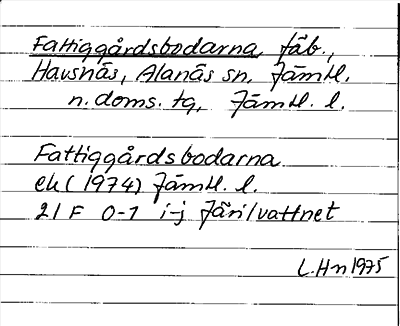 Fattiggårdsbodarna, fäb.,
Havsnäs, Alanäs sn. Jämtl.
n. doms. tg, Jämtl. l.
Fattiggårdsbodarna
ek (1974) Jämtl. l.
21 F 0-1 i-j Järilvattnet
L.Hn 1975